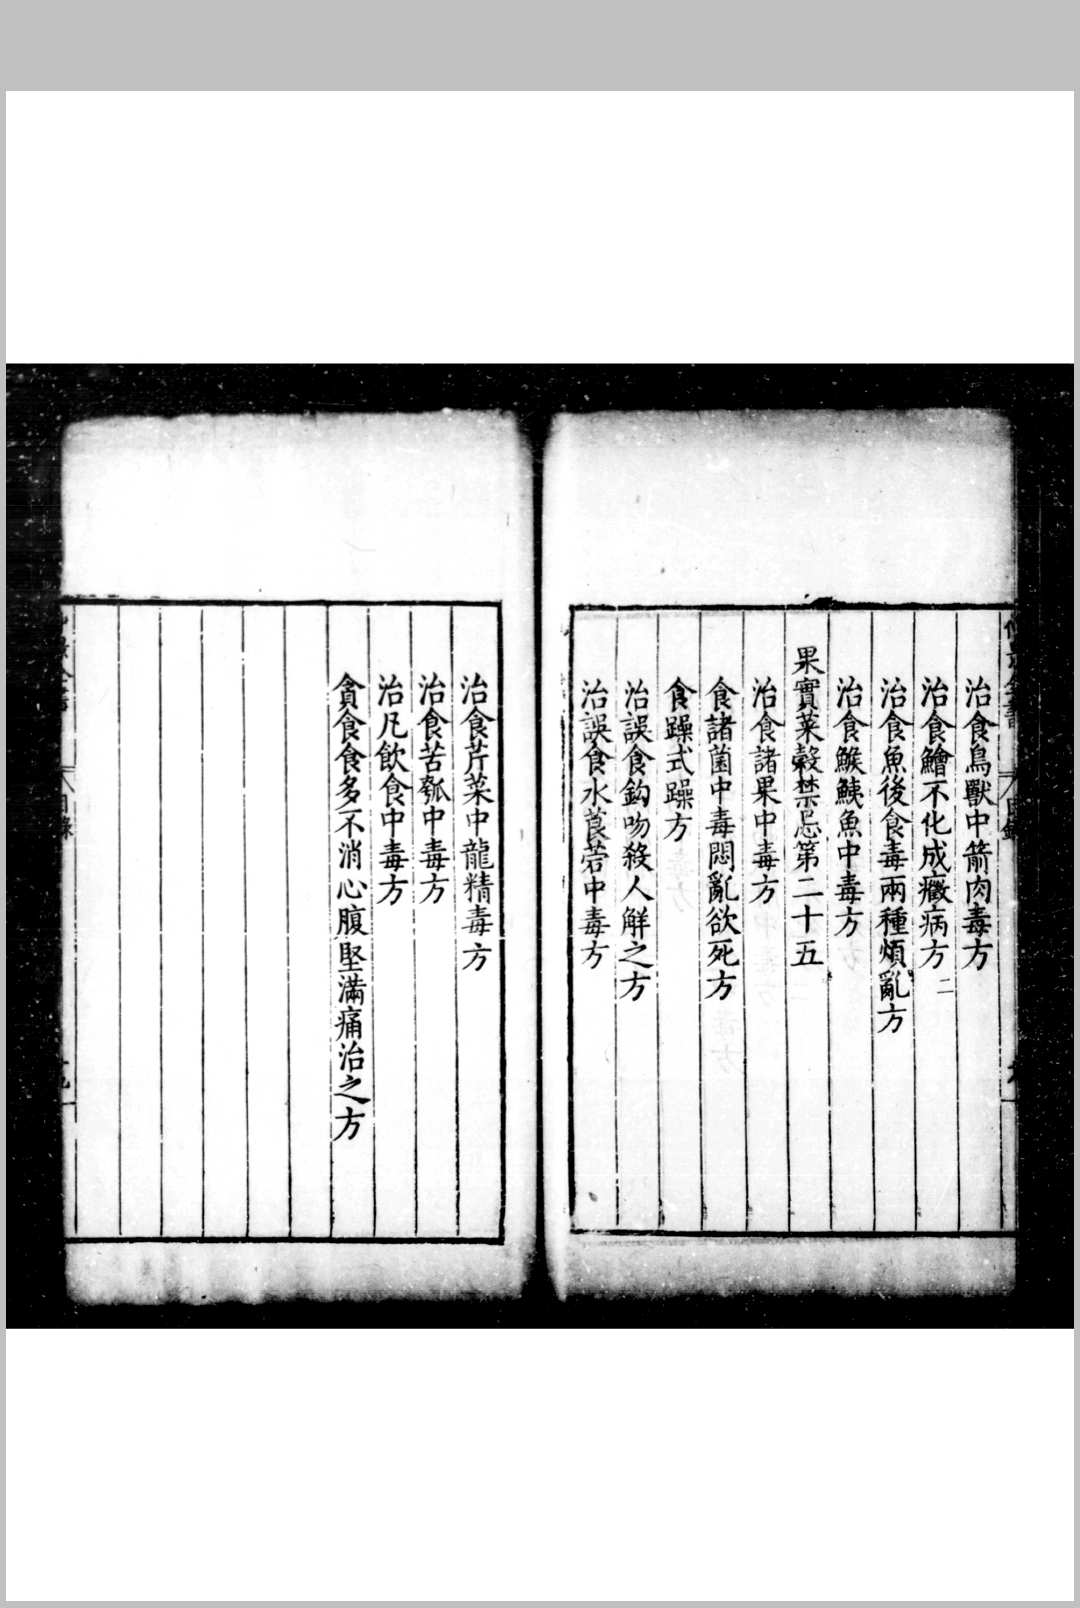 治食鳥獸中箭肉毒方
治食鱠不化成癥病方二
治食魚後食毒兩種煩亂方
治食鯸鮧魚中毒方
果實菜穀禁忌第二十五
治食諸果中毒方
食諸菌中毒悶亂欲死方
食躁式躁方
治誤食鈎吻殺人觧之方
治誤食水莨菪中毒方
治食芹菜中龍精毒方
治食苦瓠中毒方
治凡飲食中毒方
貪食食多不消心腹堅滿痛治之方